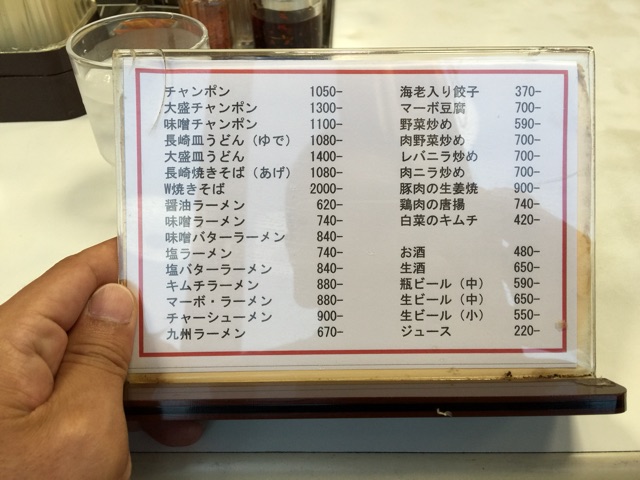 チャンポン 1050-
大盛チャンポン 1300-
味噌チャンポン 1100-
長崎皿うどん（ゆで） 1080-
大盛皿うどん 1400-
長崎焼きそば（あげ） 1080-
W焼きそば 2000-
醤油ラーメン 620-
味噌ラーメン 740-
味噌バターラーメン 840-
塩ラーメン 740-
塩バターラーメン 840-
キムチラーメン 880-
マーボ・ラーメン 880-
チャーシューメン 900-
九州ラーメン 670-
海老入り餃子 370-
マーボ豆腐 700-
野菜炒め 590-
肉野菜炒め 700-
レバニラ炒め 700-
肉ニラ炒め 700-
豚肉の生姜焼 900-
鶏肉の唐揚 740-
白菜のキムチ 420-
お酒 480-
生酒 650-
瓶ビール（中） 590-
生ビール（中） 650-
生ビール（小） 550-
ジュース 220-